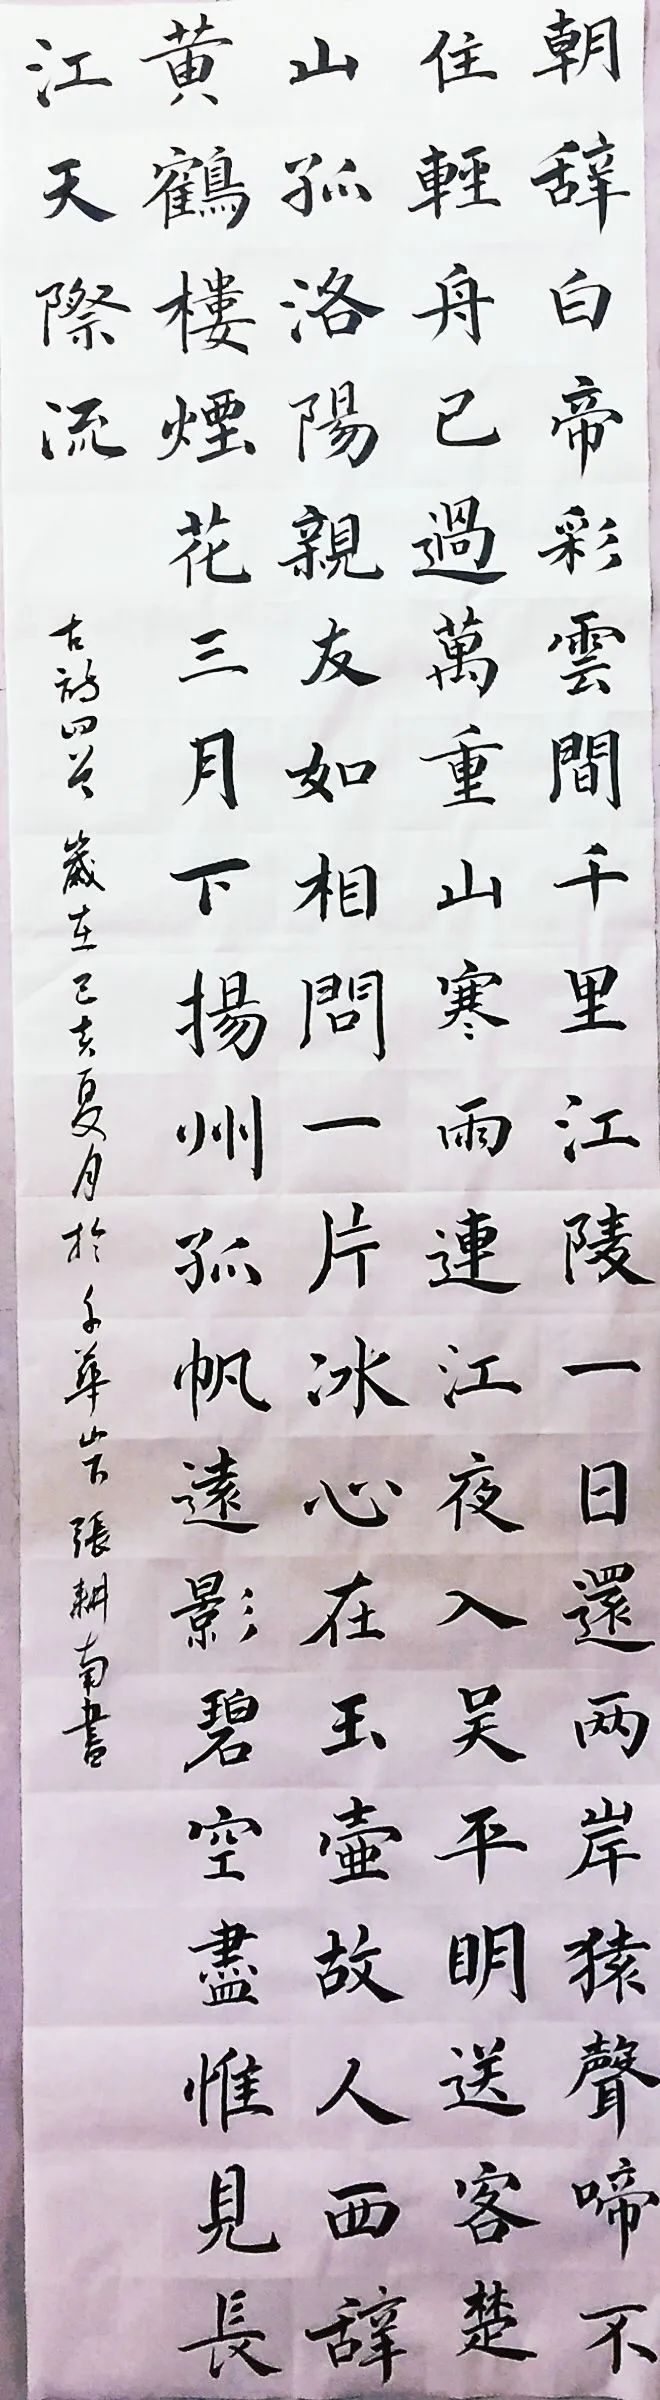 朝辞白帝彩雲間千里江陵一日還两岸猿聲啼不
住輕舟已過萬重山寒雨連江夜入吴平明送客楚
山孤洛陽親友如相問一片冰心在玉壺故人西辞
黄鶴樓煙花三月下揚州孤帆遠影碧空盡惟見長
江天際流
古詩四首 歲在己亥夏月於千華山下張耕南書